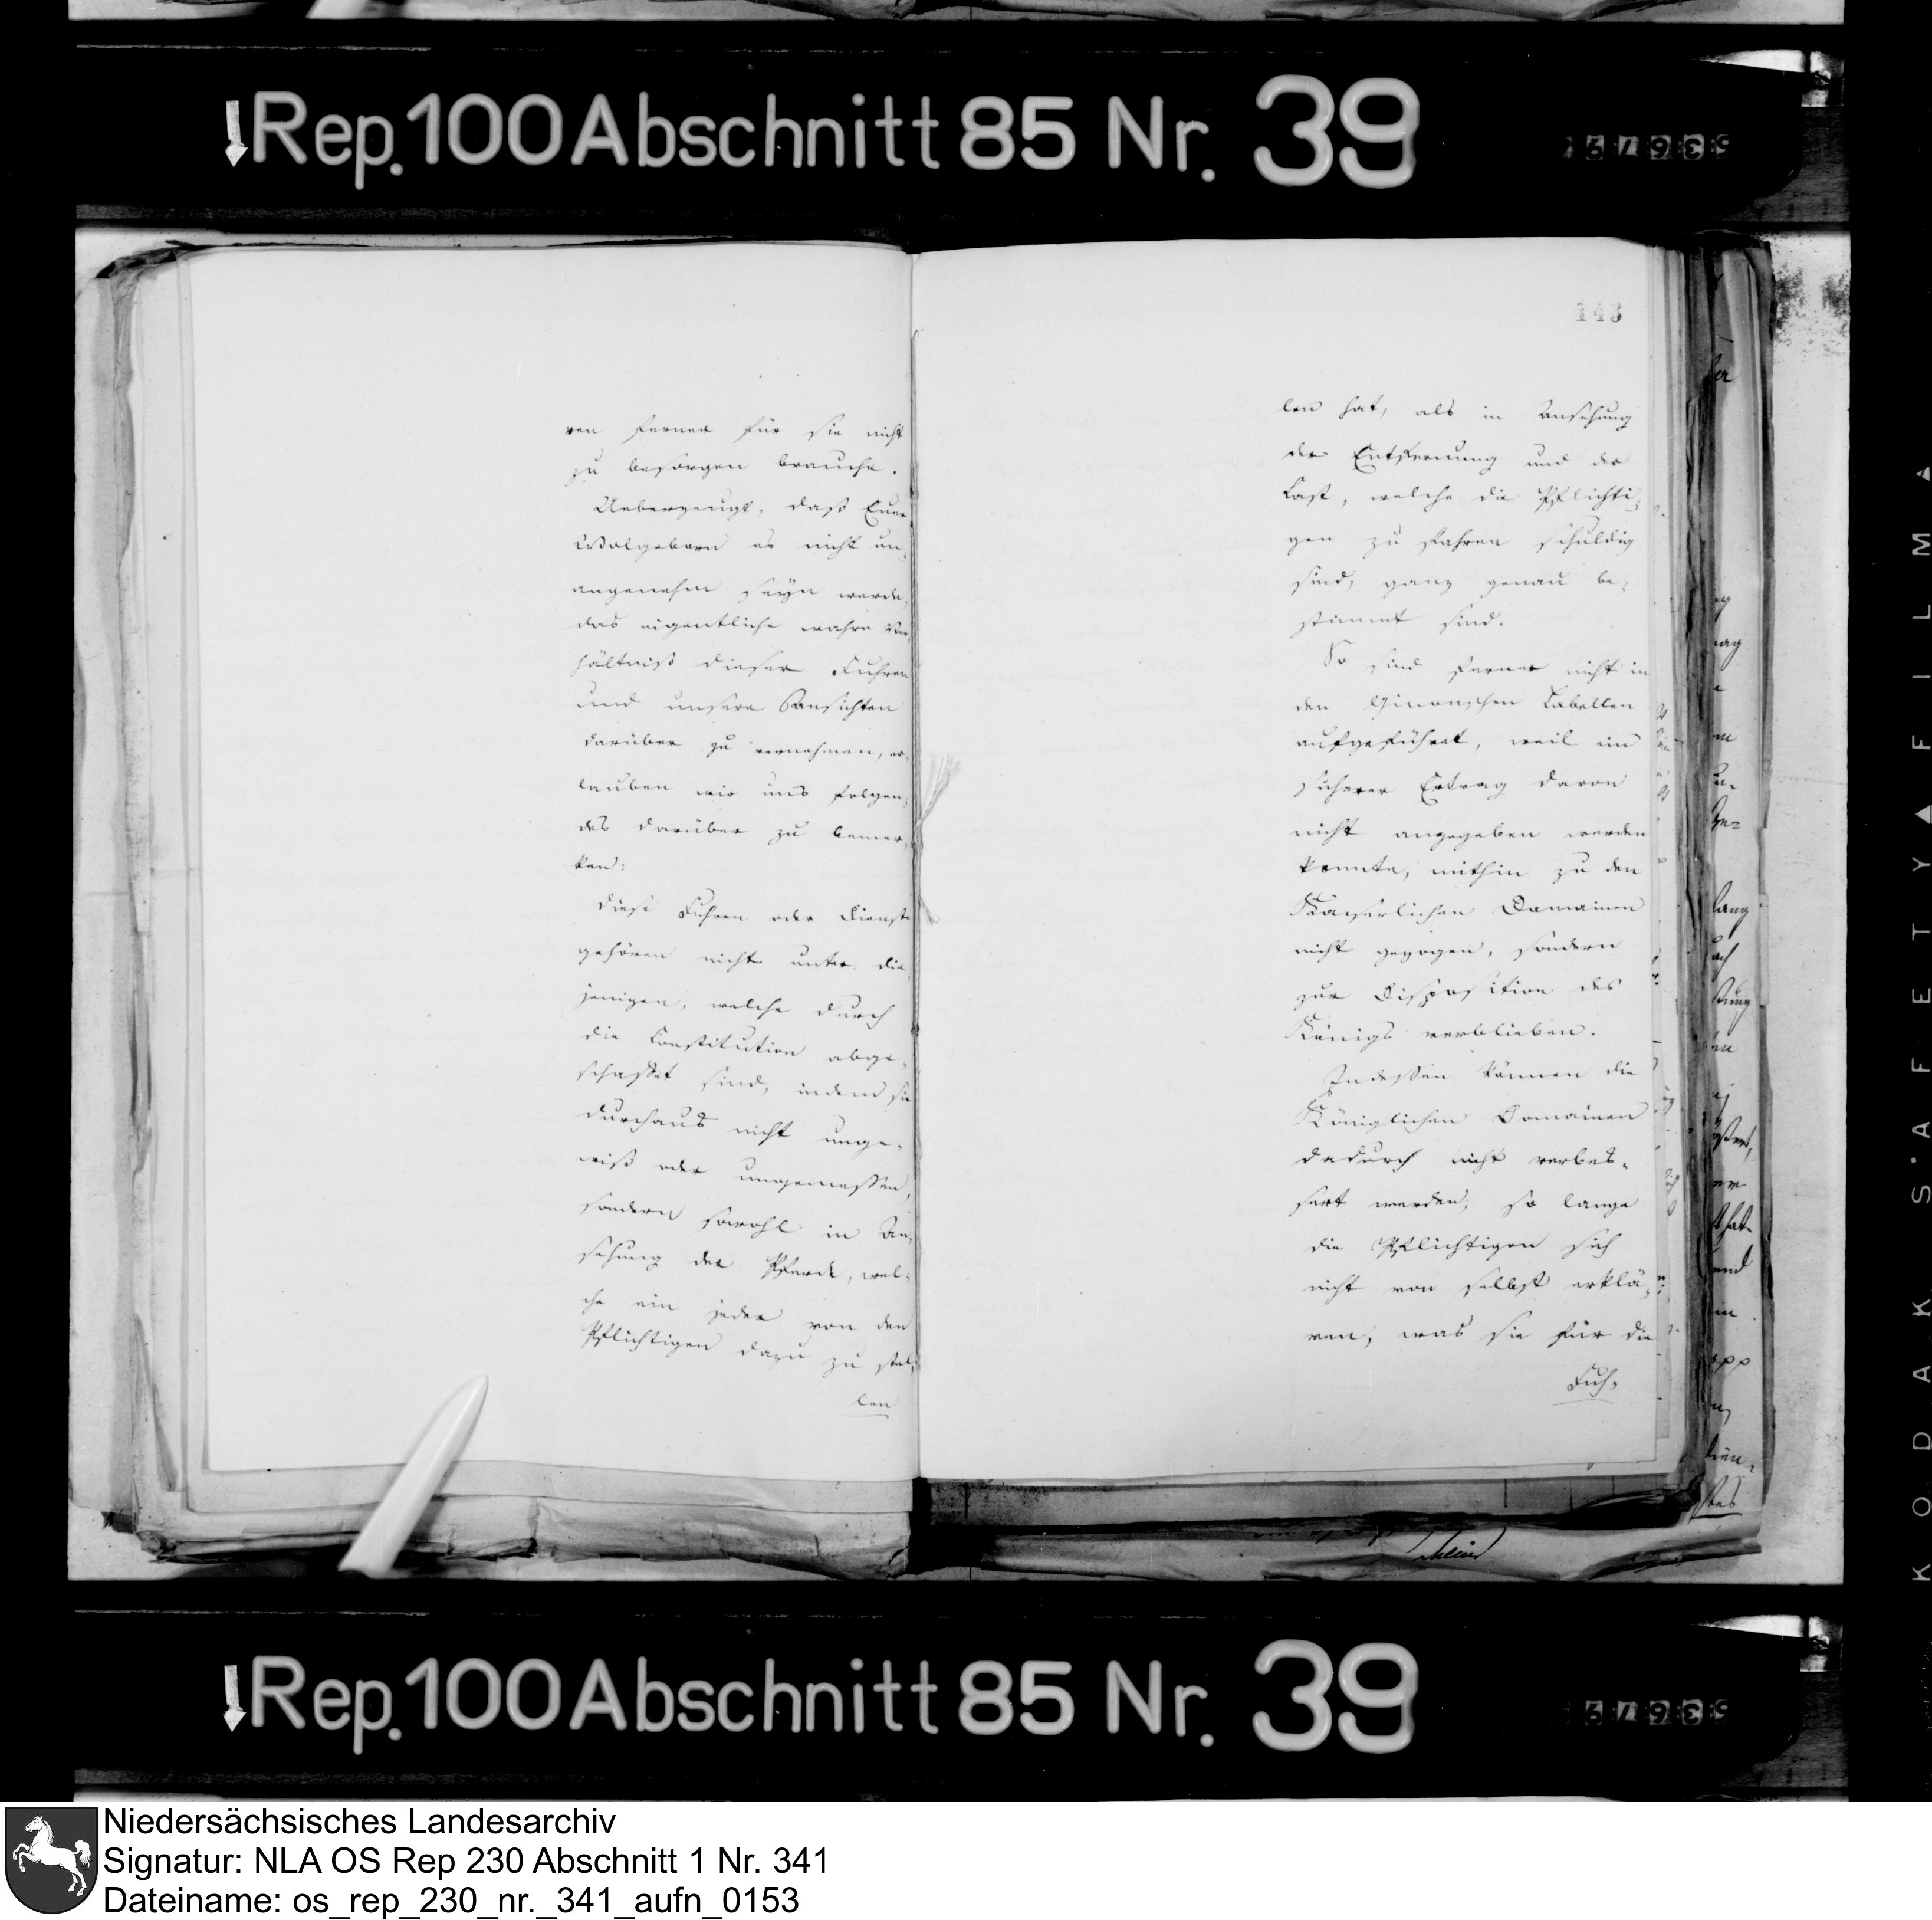 Rep. 100 Abschnitt 85 Nr. 39
ren ferner für sie nicht
zu besorgen brauche.
Ueberzeugt, daß Euer
Wolgeborn es nicht un-
angenehm seyn werde,
das eigentliche wahre Ver-
hältniß dieser Fuhren
und unsere Ansichten
darüber zu vernehmen, er-
lauben wir uns folgen-
des darüber zu bemer-
ken:
Diese Fuhren oder Dienste
gehören nicht unter die-
jenigen, welche durch
die Constitution abge-
schaffet sind, indem sie
durchaus nicht unge-
wiß oder ungemessen,
sondern sowohl in An-
sehung der Pferde, wel-
che ein jeder von den
Pflichtigen dazu zu stel-
len
143
len hat, als in Ansehung
der Entfernung und der
Last, welche die Pflichti-
gen zu fahren schuldig
sind, ganz genau be-
stimmt sind.
So sind ferner nicht in
den Tabellen
aufgeführet, weil ein
sicherer Ertrag davon
nicht angegeben werden
konnte, mithin zu den
Kaiserlichen Domainen
nicht gezogen, sondern
zur Disposition des
Königs verblieben.
Indessen können die
Königlichen Domainen
dadurch nicht verbes-
sert werden, so lange
die Pflichtigen sich
nicht von selbst erklä-
ren, was sie für die
Fuh-
KODAK SAFETY FILM
Rep. 100 Abschnitt 85 Nr. 39
Niedersächsisches Landesarchiv
Signatur: NLA OS Rep 230 Abschnitt 1 Nr. 341
Dateiname: os_rep_230_nr._341_aufn_0153